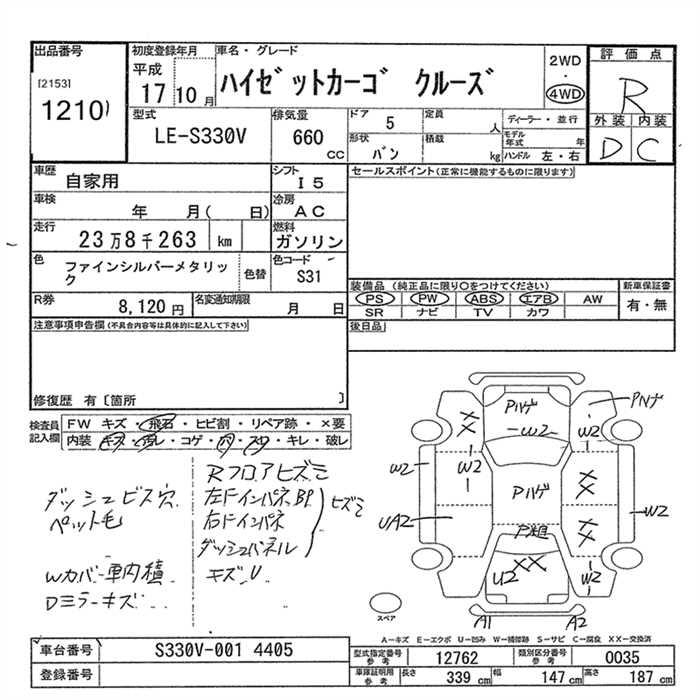 出品番号
[2153]
1210
初度登録年月
平成
17 10 月
車名・グレード
ハイゼットカーゴ クルーズ
2WD
・
4WD
評価点
R
外装 内装
D C
型式
LE-S330V
排気量
660
CC
ドア 5
形状 バン
定員 人
積載 kg
ディーラー・並行
モデル年式 年
ハンドル 左・右
車歴 自家用
シフト I5
車検 年 月( 日)
冷房 AC
走行 23万8千263 km
燃料 ガソリン
色 ファインシルバーメタリック
色替
色コード S31
R券 8,120円
名変通知期限 月 日
セールスポイント(正常に機能するものに限ります)
装備品 (純正品に限り○をつけてください)
PS PW ABS エアB AW
SR ナビ TV カワ
新車保証書
有・無
後日品
注意事項申告欄(不具合内容等は具体的に記入して下さい)
修復歴 有〔箇所 〕
検査員記入欄
FW キズ・飛石・ヒビ割・リペア跡・×要
内装 キズ・汚レ・コゲ・穴・スレ・キレ・破レ
ダッシュビス穴
ペット毛
Wカバー車内積
Dミラーキズ
Rフロアヒズミ
左ドインパネBP
右ドインパネ
ダッシュパネル
ヒズミ
キズU
Pハゲ
W2
XX
W2
W2
W2
Pハゲ
XX
UA2
XX
W2
U2 XX
W2
A1 A2
スペア
A-キズ E-エクボ U-凹み W-補修跡 S-サビ C-腐食 XX-交換済
車台番号 S330V-001 4405
登録番号
型式指定番号 参考 12762
類別区分番号 参考 0035
車庫証明用 参考 長さ 339 cm 幅 147 cm 高さ 187 cm